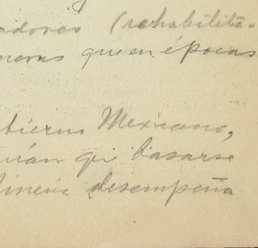 adores (rehabilita-
neras que en épocas
bierno Mexicano,
que basarse
desempeña